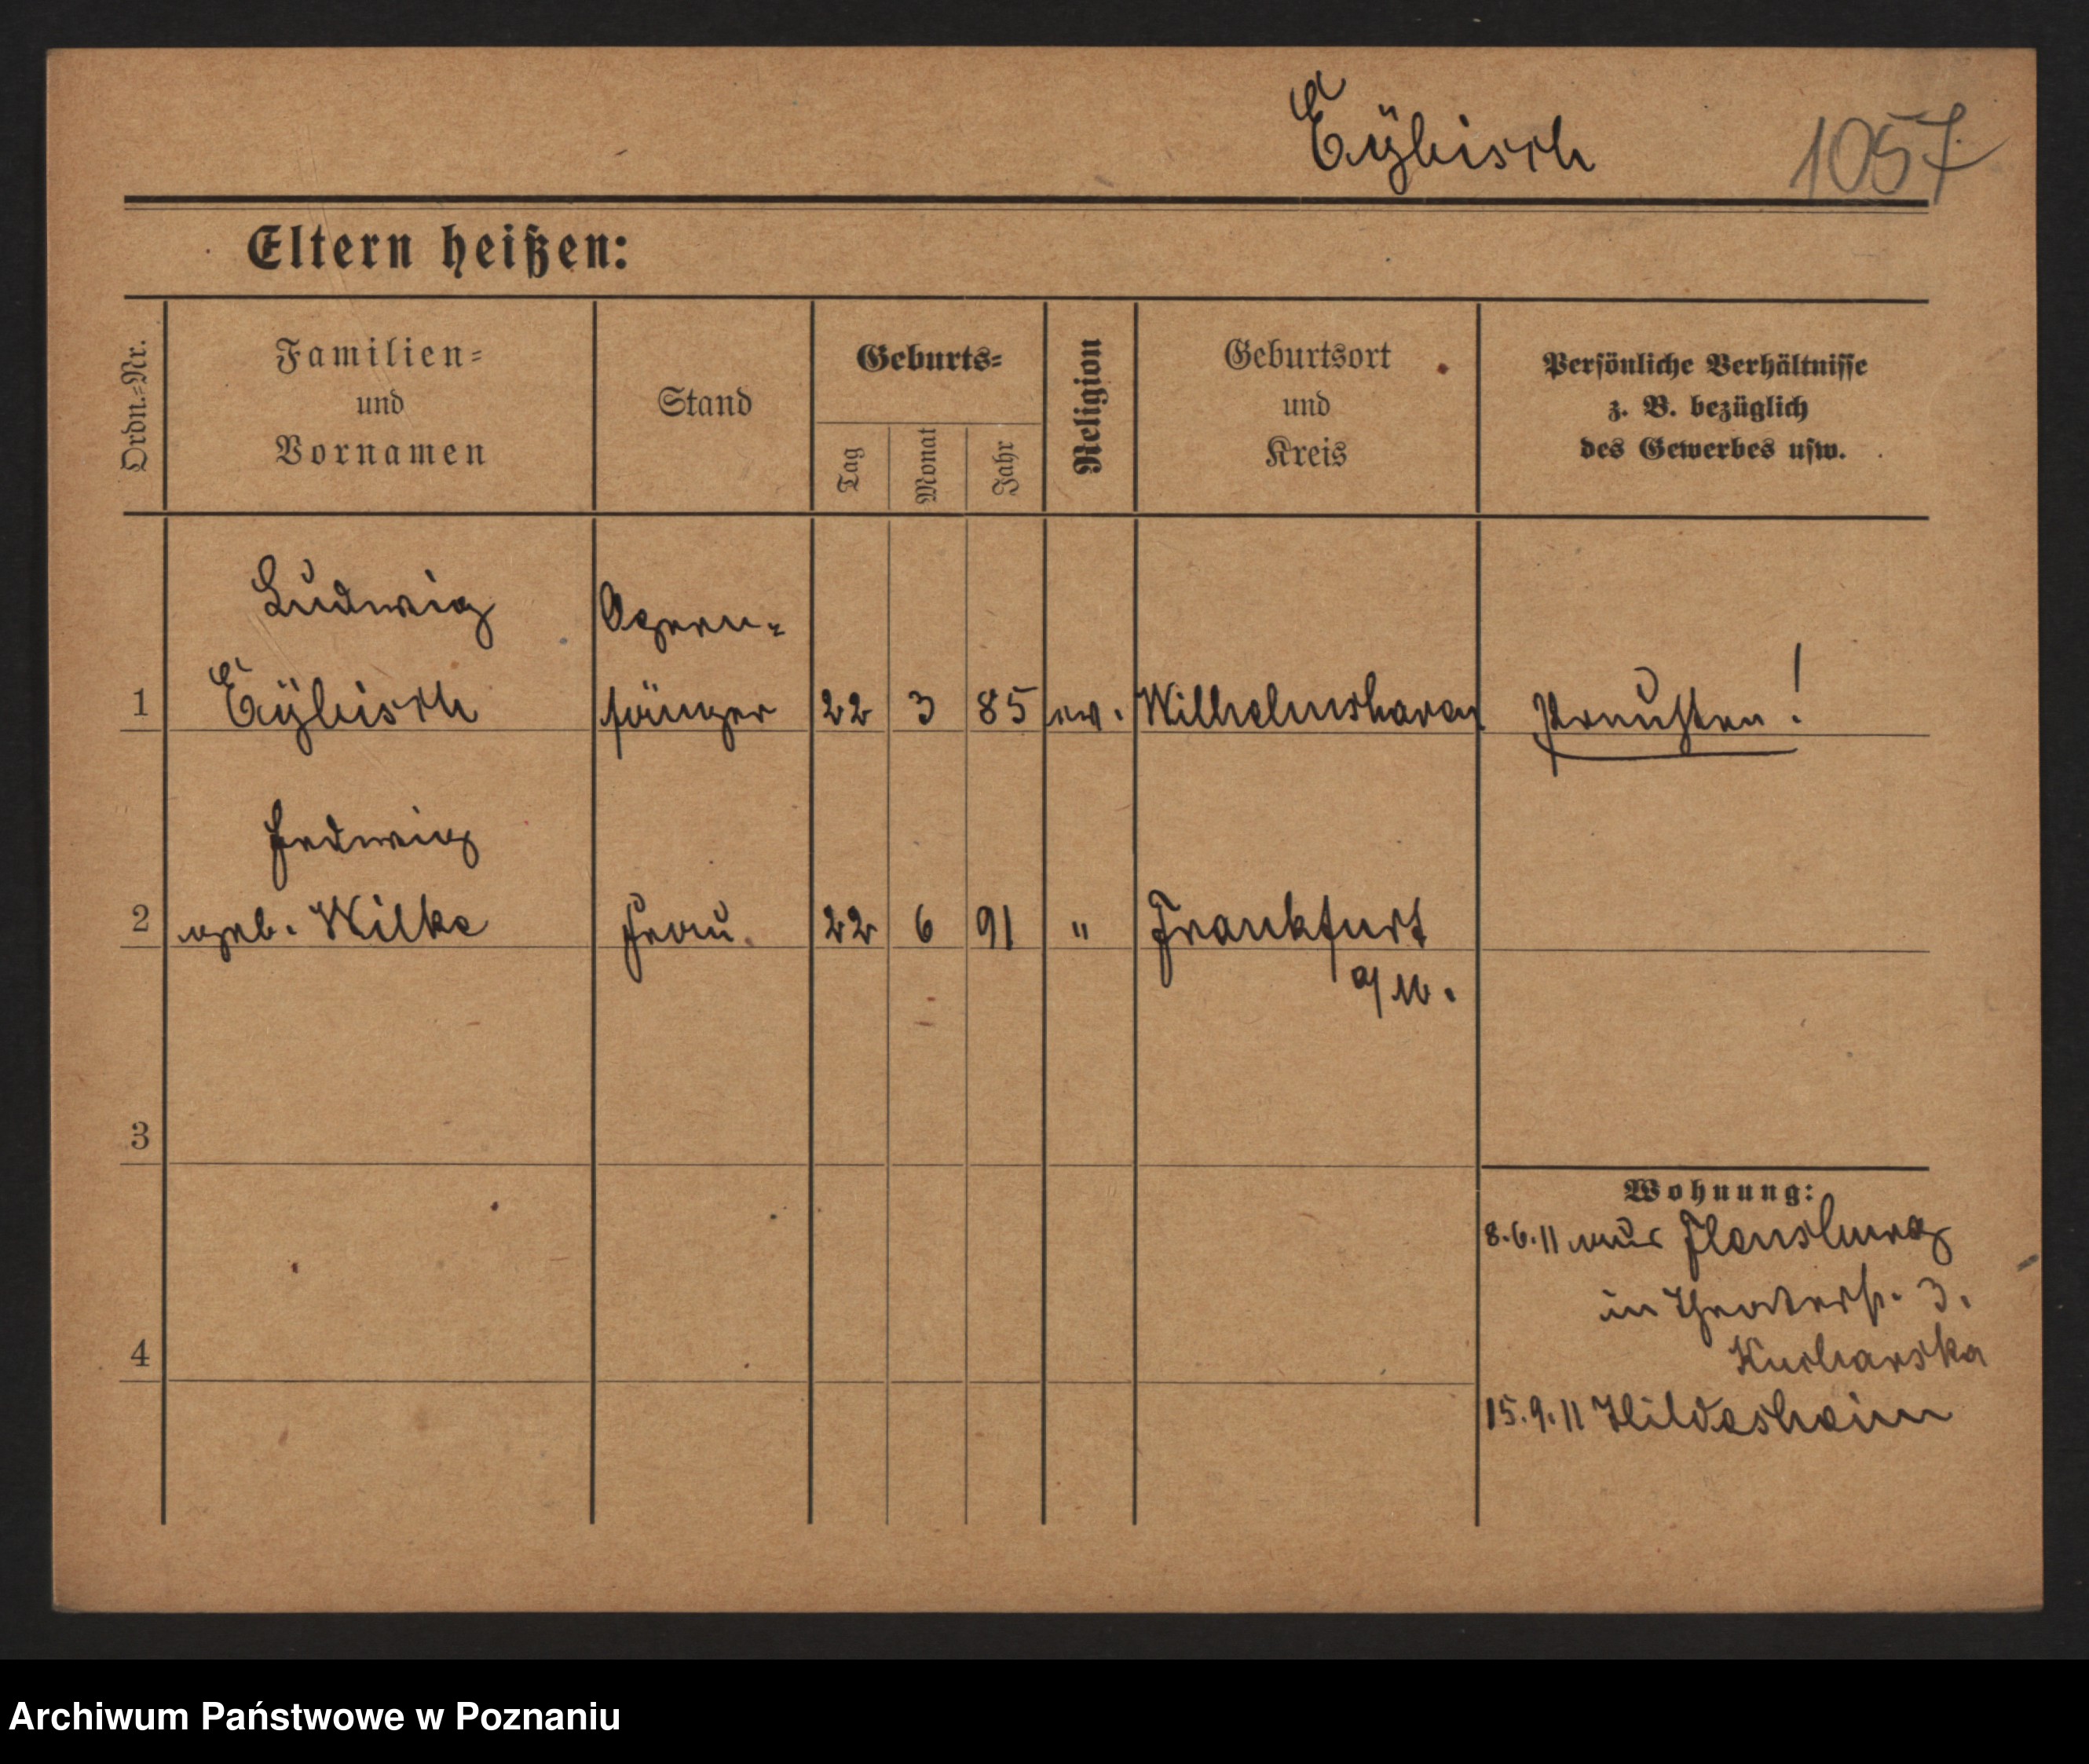 Eÿbisch 1057
Eltern heißen:
Ordn.=Nr.
Familien=
und
Vornamen
Stand
Geburts=
Tag
Monat
Jahr
Religion
Geburtsort
und
Kreis
Persönliche Verhältnisse
z. B. bezüglich
des Gewerbes usw.
Ludwig Opern=
1 Eÿbisch sänger 22 3 85 ev. Wilhelmshaven Preußen!
Hedwig
2 geb. Wilke Frau 22 6 91 " Frankfurt
a/M.
3
Wohnung:
8.6.11 aus Flensburg
in Theaterstr. 3.
Kucharska
4
15.9.11 Hildesheim
Archiwum Państwowe w Poznaniu